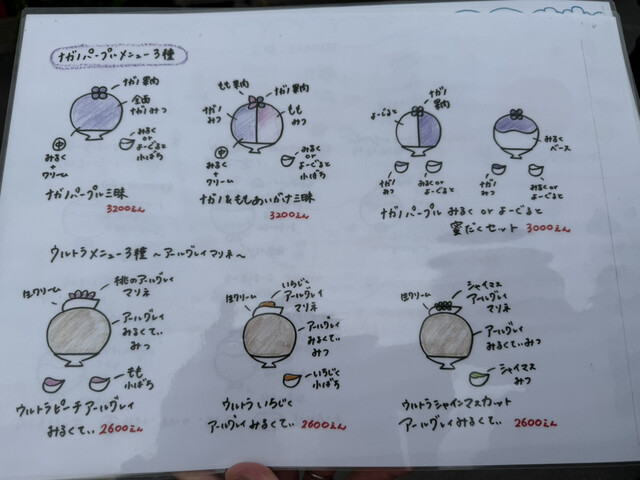 ナガノパープルメニュー3種
ナガノ果肉
全面
ナガノみつ
みるく
or
よーぐると
小ばち
中
みるく
+
クリーム
ナガノパープル三昧
3200えん
もも果肉
ナガノ果肉
ナガノ
みつ
もも
みつ
みるく
or
よーぐると
小ばち
中
みるく
+
クリーム
ナガノ&ももあいがけ三昧
3200えん
ナガノ
果肉
よーぐると
ナガノ
みつ
みるく or
よーぐると
みるく
ベース
ナガノ
みつ
みるく or
よーぐると
ナガノパープル みるく or よーぐると
蜜だくセット 3000えん
ウルトラメニュー3種 ~アールグレイマリネ~
はクリーム
桃のアールグレイ
マリネ
アールグレイ
みるくてぃ
みつ
もも
小ばち
ウルトラピーチアールグレイ
みるくてぃ 2600えん
はクリーム
いちじく
アールグレイ
マリネ
アールグレイ
みるくてぃ
みつ
いちじく
小ばち
ウルトラいちじく
アールグレイみるくてぃ 2600えん
はクリーム
シャイマス
アールグレイ
マリネ
アールグレイ
みるくてぃみつ
シャイマス
みつ
ウルトラシャインマスカット
アールグレイみるくてぃ 2600えん